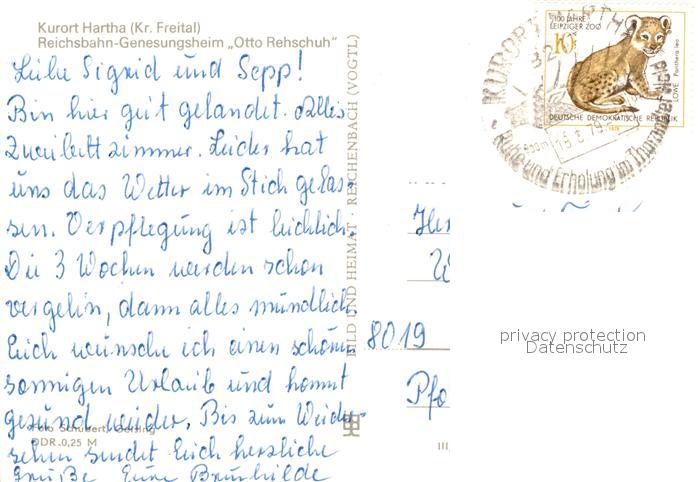 Kurort Hartha (Kr. Freital)
Reichsbahn-Genesungsheim „Otto Rehschuh"
Liebe Sigrid und Sepp!
Bin hier gut gelandet. Alles
Zweibettzimmer. Leider hat
uns das Wetter im Stich gelas-
sen. Verpflegung ist reichlich.
Die 3 Wochen werden schon
vergehn, dann alles mündlich
Euch wünsche ich einen schönen
sonnigen Urlaub und kommt
gesund wieder. Bis zum Wieder-
sehn sendet Euch herzliche
Grüße Eure Brunhilde
DDR 0,25 M
BILD UND HEIMAT · REICHENBACH (VOGTL)
100 JAHRE
LEIPZIGER ZOO
10
LÖWE Panthera leo
DEUTSCHE DEMOKRATISCHE REPUBLIK
1978
KURORT HARTHA
Ruhe und Erholung im Tharandter Wald
8019
privacy protection
Datenschutz
III